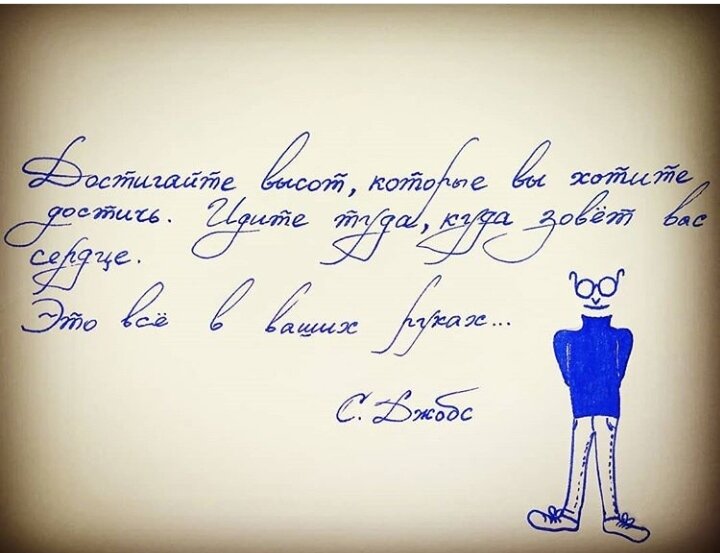 Достигайте высот, которые вы хотите
достичь. Идите туда, куда зовёт вас
сердце.
Это всё в ваших руках...
С. Джобс